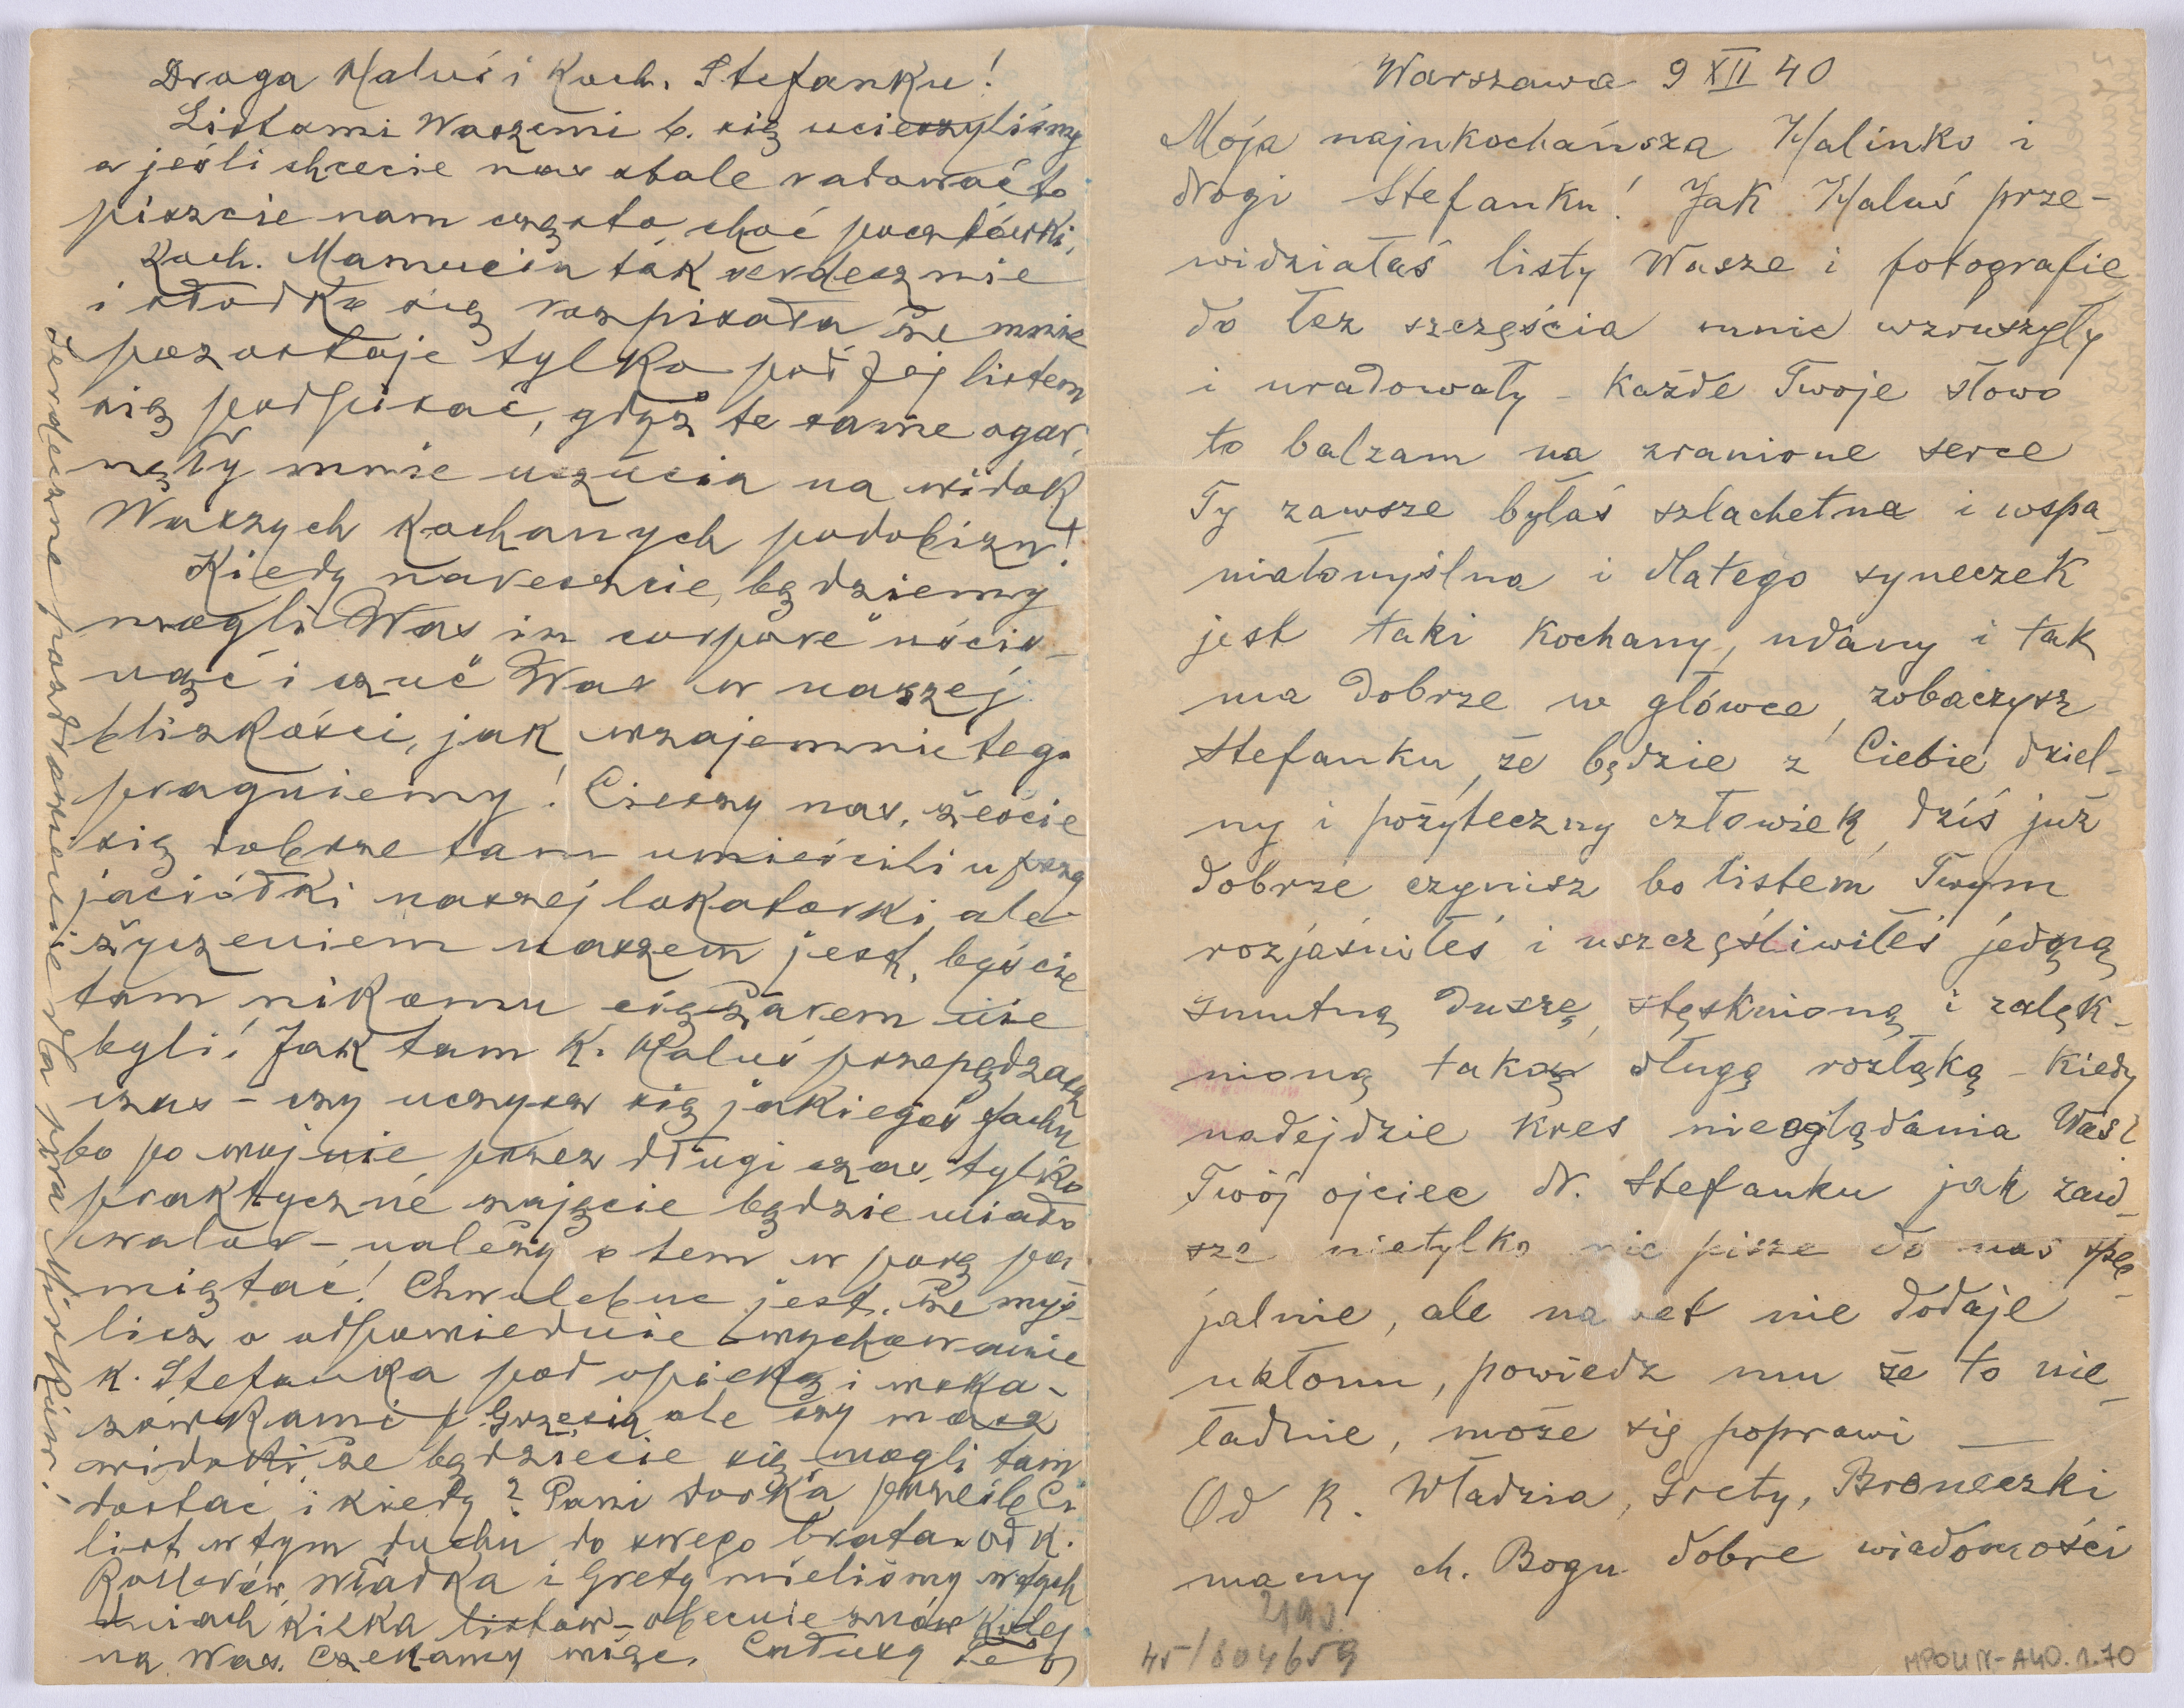 Warszawa 9 XII 40
Moja najukochańsza Halinko i
drogi Stefanku! Jak Haluś prze-
widziałaś listy Wasze i fotografie
do łez szczęścia mnie wzruszyły
i uradowały – każde Twoje słowo
to balzam na zranione serce
Ty zawsze byłaś szlachetna i wspa-
niałomyślna i dlatego syneczek
jest taki kochany, udany i tak
ma dobrze w główce, zobaczysz
Stefanku, że będzie z Ciebie dziel-
ny i pożyteczny człowiek, dziś już
dobrze czynisz bo listem Twym
rozjaśniłeś i uszczęśliwiłeś jedną
smutną duszę, stęsknioną i zalęk-
nioną taką długą rozłąką – kiedy
nadejdzie kres nieoglądania Was?
Twój ojciec dr. Stefanku jak zaw-
sze nietylko nie pisze do nas spec-
jalnie, ale nawet nie dodaje
ukłonu, powiedz mu że to nie-
ładnie, może się poprawi —
Od k. Władzia, Grety, Broneczki
mamy ch. Bogu dobre wiadomości
2190.
45/004659
MPOLIN-A40.1.70
Droga Haluś i Koch. Stefanku!
Listami Waszemi b. się ucieszyliśmy
a jeśli chcecie nas stale radować to
piszcie nam często, choć pocztówki,
Koch. Mamucia tak serdecznie
i słodko się rozpisała, że mnie
pozostaje tylko pod Jej listem
się podpisać, gdyż te same ogar-
nęły mnie uczucia na widok
Waszych kochanych podobizn!
Kiedy nareszcie, będziemy
mogli Was "in corpore" uścis-
nąć i czuć Was w naszej
bliskości, jak wzajemnie tego
pragniemy! Cieszy nas, żeście
się dobrze tam umieścili u przy
jaciółki naszej lokatorki, ale
życzeniem naszem jest, byście
tam nikomu ciężarem nie
byli! Jak tam K. Haluś przepędzasz
czas – czy uczysz się jakiegoś fachu
bo po wojnie przez długi czas, tylko
praktyczne zajęcie będzie miało
walor – należy o tem w porę pa-
miętać! Chwalebne jest, że myś-
lisz o odpowiednie wychowanie
k. Stefanka pod opieką i wska-
zówkami p. Grzesia, ale czy masz
widoki, że będziecie się mogli tam
dostać i kiedy? Pani prześle Ci
list w tym duchu do swego brata. Od K.
Władka i Grety mieliśmy w tych
dniach kilka listów – obecnie znów kolej
na Was. Czekamy więc. Całuję
Serdeczne pozdrowienie dla pp.